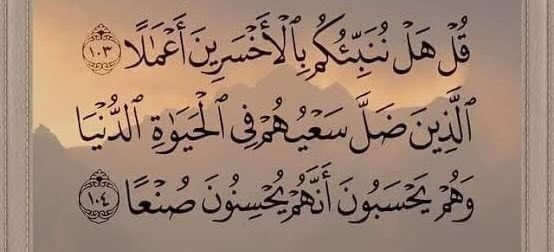 قُلْ هَلْ نُنَبِّئُكُم بِٱلْأَخْسَرِينَ أَعْمَٰلًا ١٠٣
ٱلَّذِينَ ضَلَّ سَعْيُهُمْ فِى ٱلْحَيَوٰةِ ٱلدُّنْيَا
وَهُمْ يَحْسَبُونَ أَنَّهُمْ يُحْسِنُونَ صُنْعًا ١٠٤